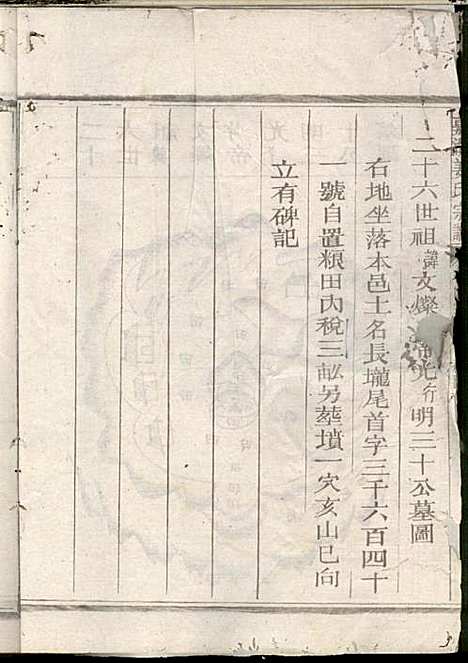 姜氏宗譜
二十六世祖諱文燦光行明三十公墓圖
右地坐落本邑土名長壠尾首字三千六百四十
一號自置粮田內稅三畝另塟墳一穴亥山巳向
立有碑記